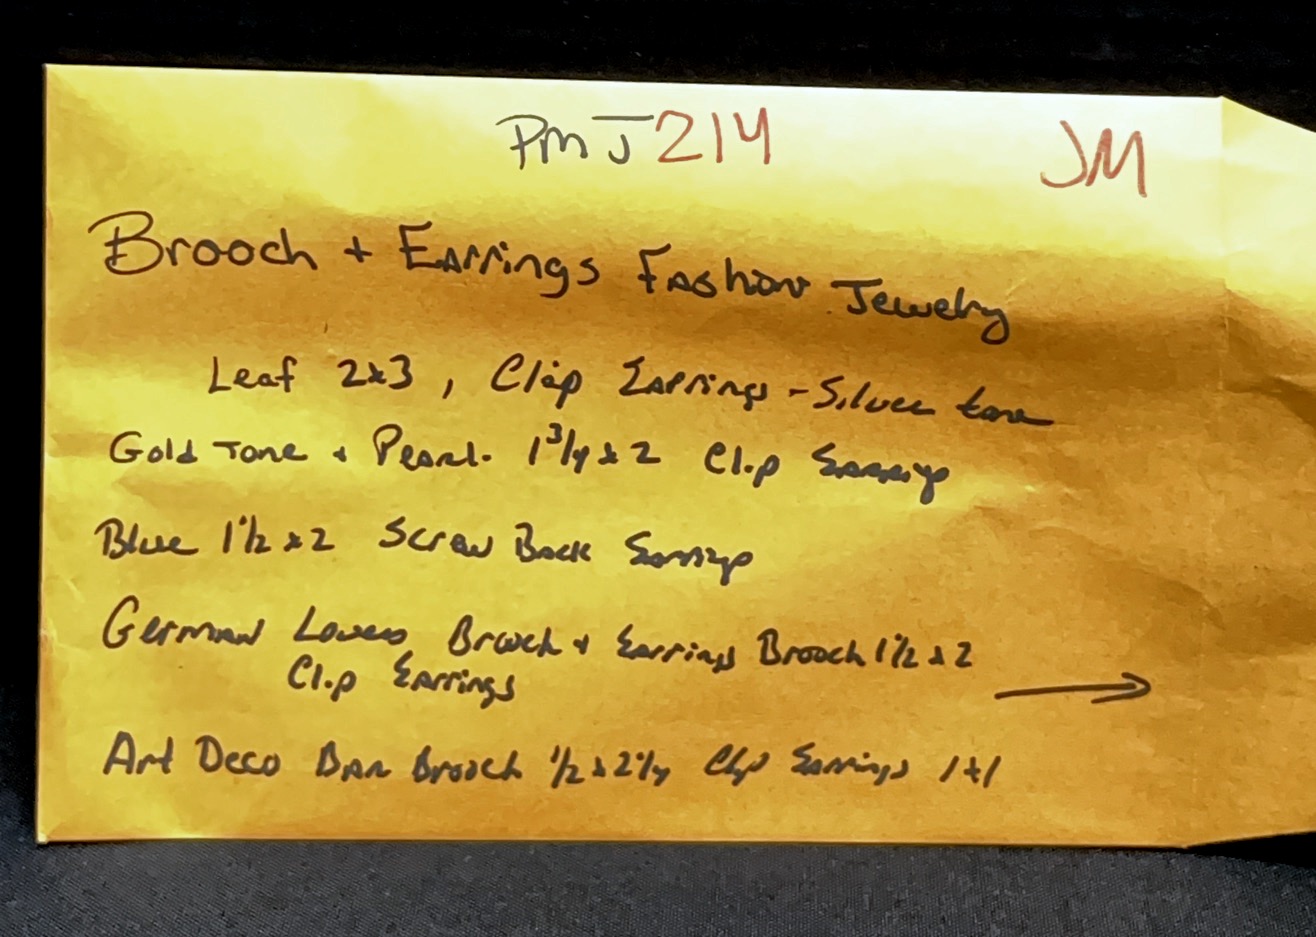 PMJ214 JM
Brooch + Earrings Fashion Jewelry
Leaf 2x3, Clip Earrings - Silver tone
Gold Tone + Pearl. 1 3/4 x 2 Clip Earrings
Blue 1 1/2 x 2 Screw Back Earrings
German Brooch + Earrings Brooch 1 1/2 x 2
Clip Earrings →
Art Deco Bar Brooch 1/2 x 2 1/4 Clip Earrings 1x1